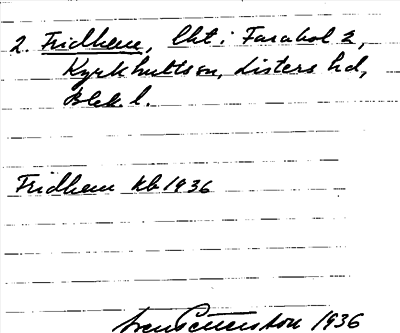 2. Fridhem, lht i Farabol 2,
Kyrkhults sn, Listers hd,
Blek. l.
Fridhem kb 1936
Sven Pettersson 1936